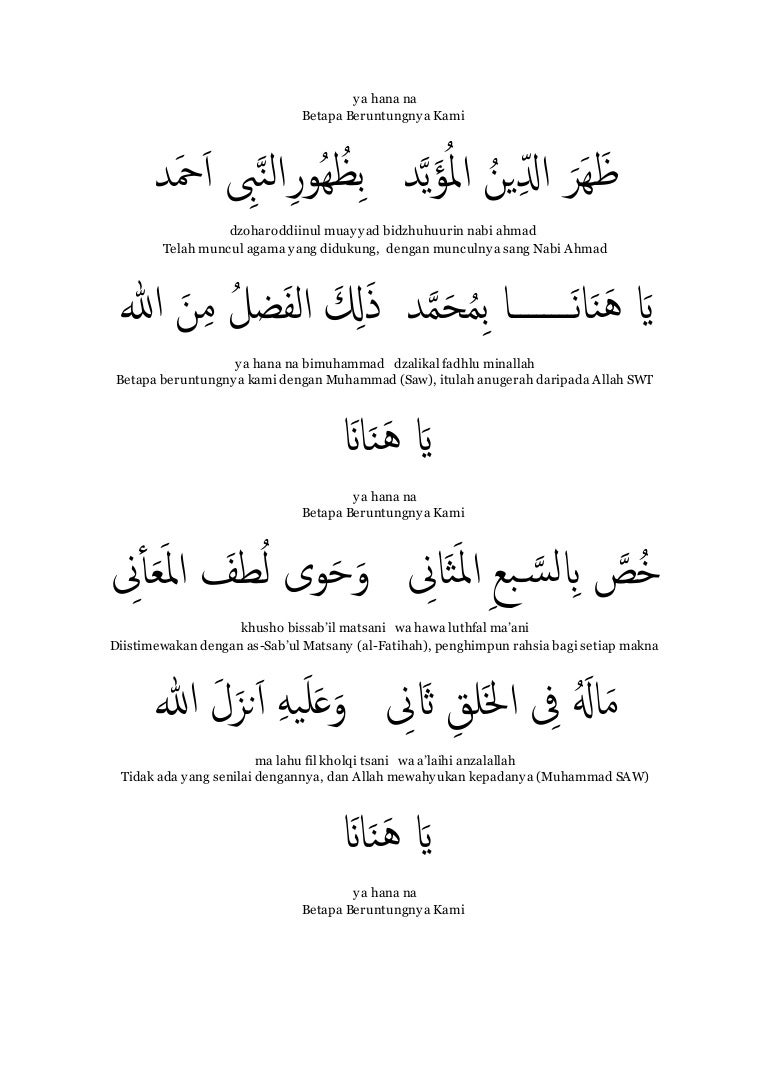 ya hana na
Betapa Beruntungnya Kami
ظَهَرَ الدِّينُ المُؤَيَّد بِظُهُورِالنَّبِى اَحمَد
dzoharoddiinul muayyad bidzhuhuurin nabi ahmad
Telah muncul agama yang didukung, dengan munculnya sang Nabi Ahmad
يَا هَنَانَـــــا بِمُحَمَّد ذَلِكَ الفَضلُ مِنَ الله
ya hana na bimuhammad dzalikal fadhlu minallah
Betapa beruntungnya kami dengan Muhammad (Saw), itulah anugerah daripada Allah SWT
يَا هَنَانَا
ya hana na
Betapa Beruntungnya Kami
خُصَّ بِالسَّبعِ المَثَانِى وَحَوى لُطفَ المَعَأنِى
khusho bissab’il matsani wa hawa luthfal ma’ani
Diistimewakan dengan as-Sab’ul Matsany (al-Fatihah), penghimpun rahsia bagi setiap makna
مَالَهُ فِى الخَلقِ ثَانِى وَعَلَيهِ اَنزَلَ الله
ma lahu fil kholqi tsani wa a’laihi anzalallah
Tidak ada yang senilai dengannya, dan Allah mewahyukan kepadanya (Muhammad SAW)
يَا هَنَانَا
ya hana na
Betapa Beruntungnya Kami